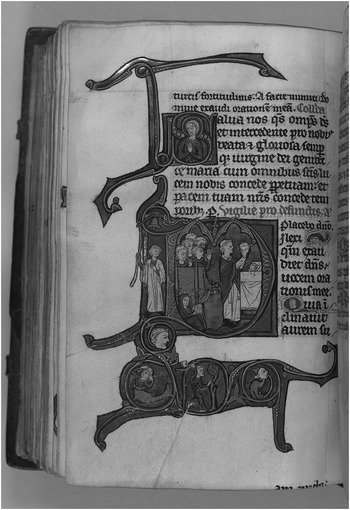 turris fortitudinis: A facie inimici. Do
mine exaudi orationē meā. Collcā
Salua nos q̄s omp̄s dš
et intercedente pro nobis
beata et gloriosa semp
q; uirgine dei genitrī
ce maria cum omnibus scīs tu
concede ppetuam: et
pacem tuam nrīs concede tem
poribꝫ. p. Vigilie pro defunctis. a
Placebo dño.
lexi
qm̄ exau
diet dñs
uocem ora
tionis mee.
Quia i
clinauit
aurem su